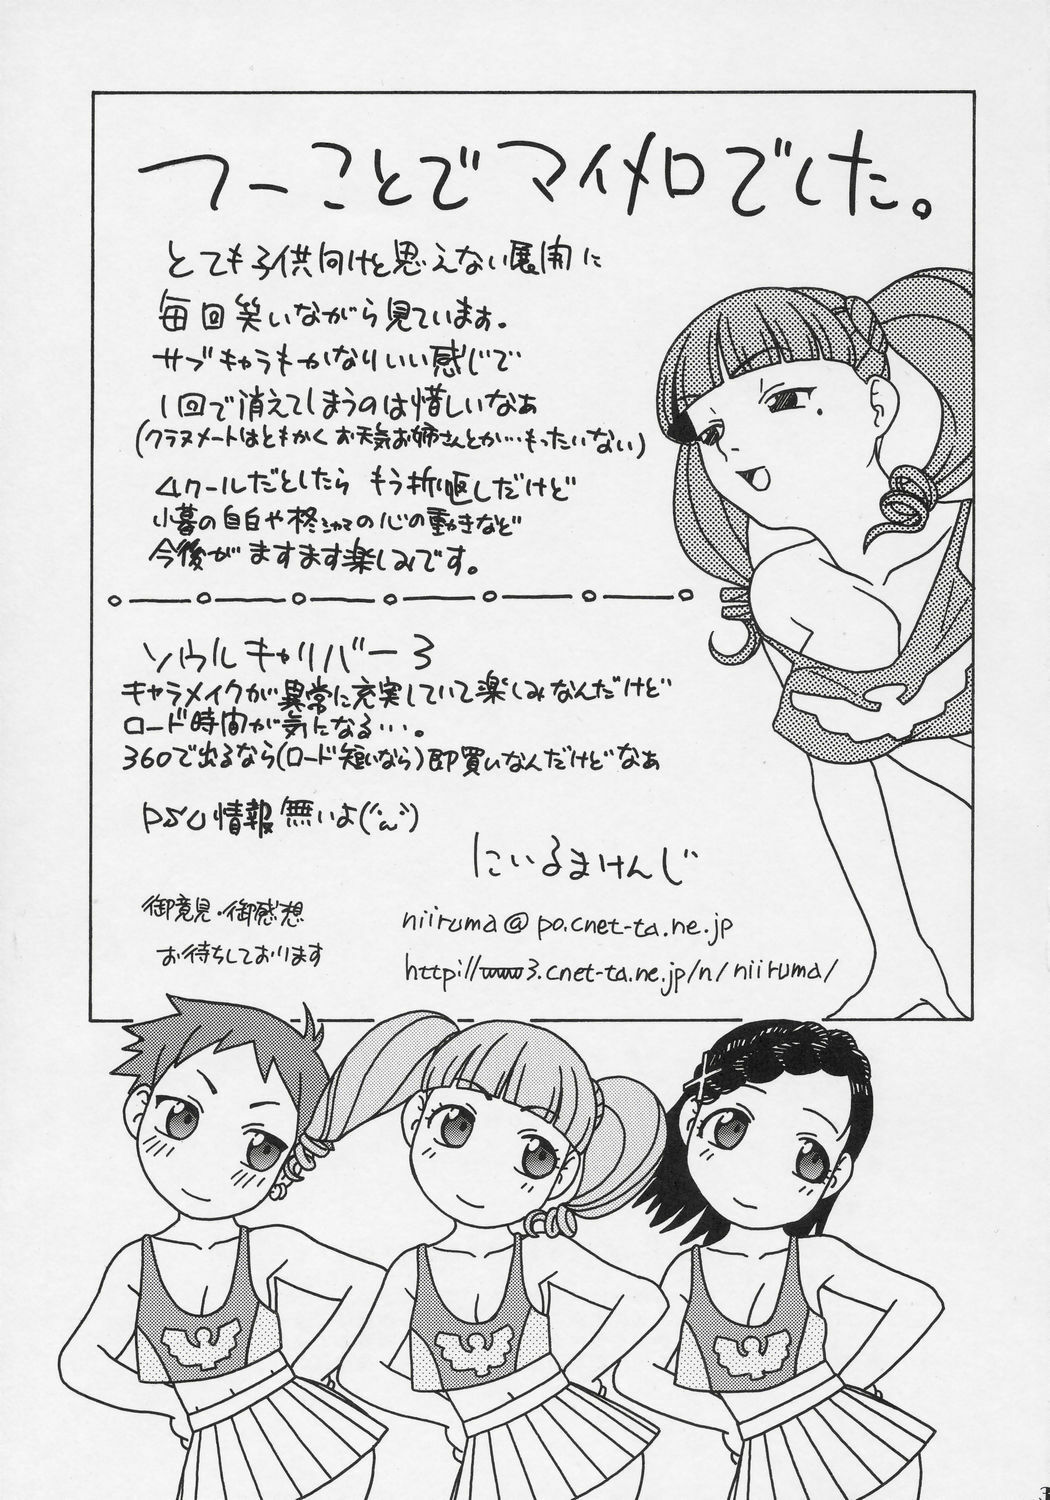 つーことでマイメロでした。
とても子供向けと思えない展開に
毎回笑いながら見ています。
サブキャラもかなりいい感じで
1回で消えてしまうのは惜しいなぁ
(クラスメートはともかく お天気お姉さんとか…もったいない)
4クールだとしたら もう折り返しだけど
小暮の自白や柊の心の動きなど
今後がますます楽しみです。
ソウルキャリバー3
キャラメイクが異常に充実していて楽しみなんだけど
ロード時間が気になる…。
360で出るなら(ロード短いなら)即買いなんだけどなぁ
PSU情報無いよ
にいるまけんじ
御意見・御感想
niiruma@po.cnet-ta.ne.jp
お待ちしております
http://www3.cnet-ta.ne.jp/n/niiruma/
3